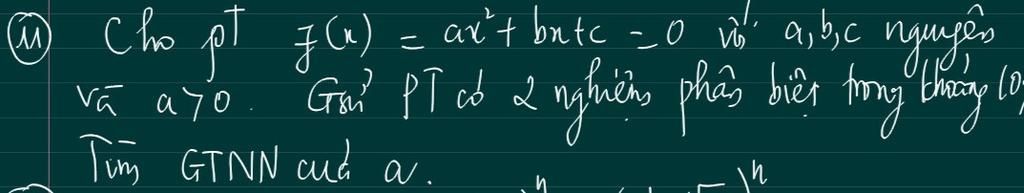 (11) Cho pT f(x) = ax² + bx + c = 0 với a, b, c nguyên
và a > 0. Gsử PT có 2 nghiệm phân biệt trong khoảng (0,
Tìm GTNN của a.